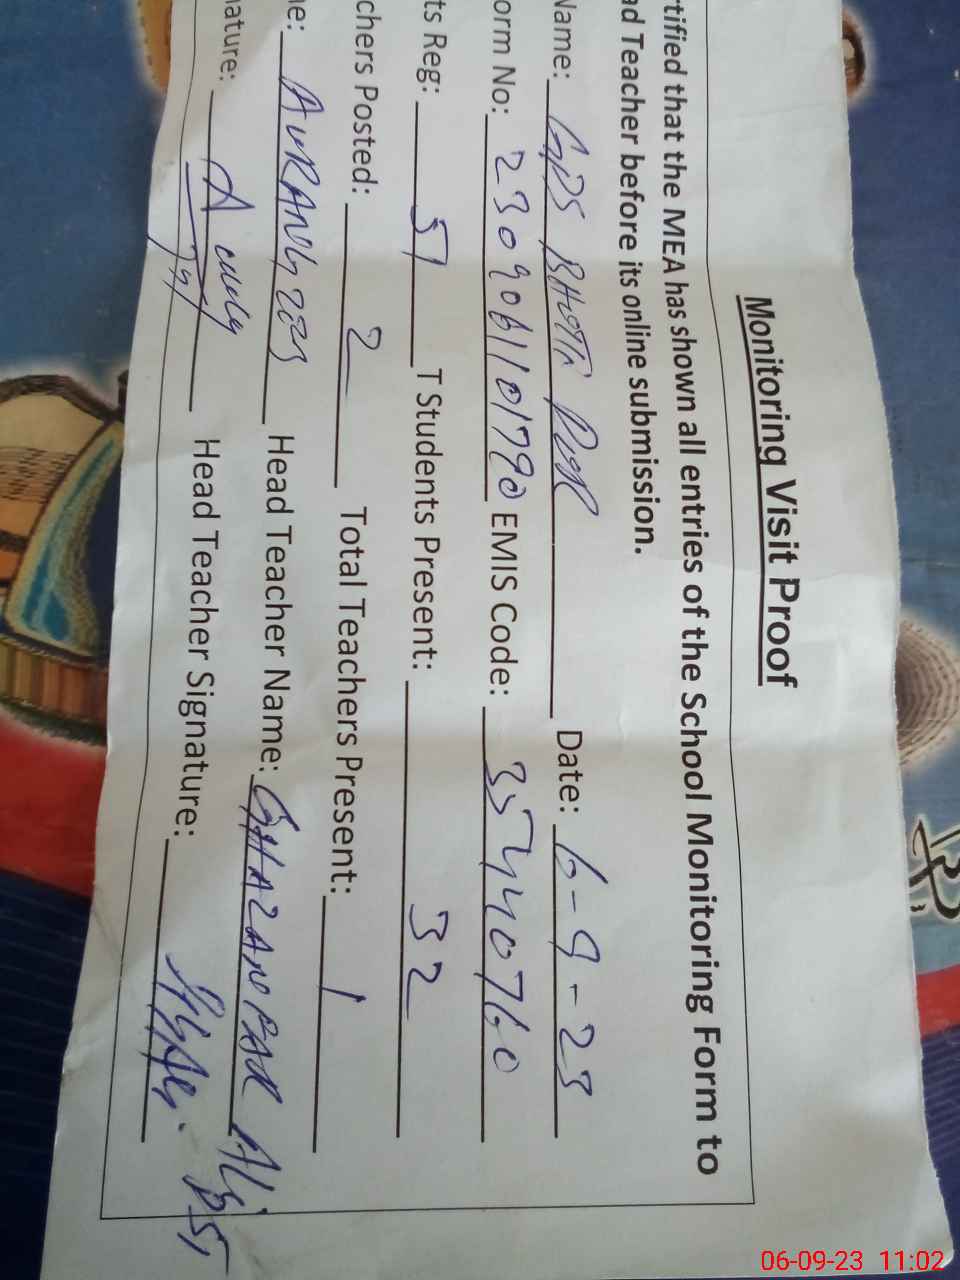 Monitoring Visit Proof
rtified that the MEA has shown all entries of the School Monitoring Form to
ad Teacher before its online submission.
Name: GPS Date: 6-9-23
orm No: EMIS Code: 35440760
ts Reg: 51 T Students Present: 32
chers Posted: 2 Total Teachers Present: 1
e: Head Teacher Name: Ali
nature: Head Teacher Signature:
06-09-23 11:02